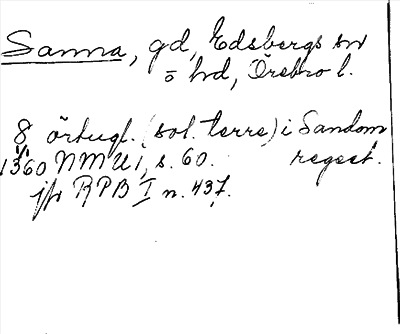 Sanna, gd, Edsbergs sn
o hd, Örebro l.
8 örtugl. (sol. terre) i Sandom
1360 8/1 NMU 1, s. 60. regest.
jfr RPB I n. 437.